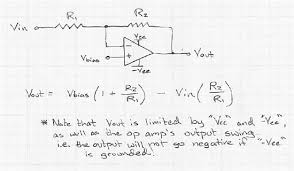 R₁ R₂
Vin
Vcc
Vbias
Vout
-Vee
Vout = Vbias (1 + R₂/R₁) - Vin (R₂/R₁)
* Note that Vout is limited by "Vcc" and "-Vee",
as well as the op amp's output swing
i.e. the output will not go negative if "-Vee"
is grounded.